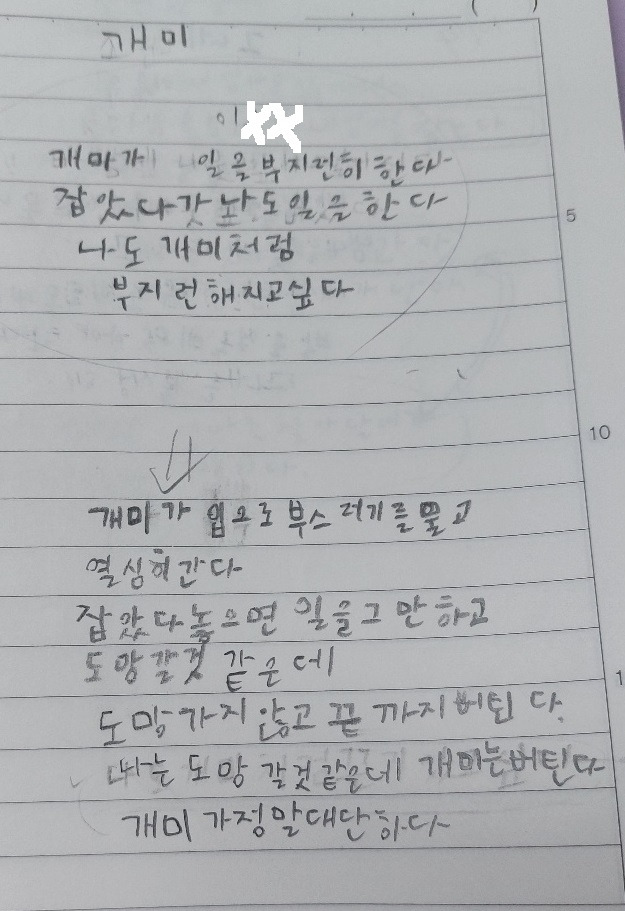 개미
이
개미가 일을 부지런히 한다
잡았다가 놔도 일을 한다
나도 개미처럼
부지런해지고싶다
5
10
개미가 입으로 부스러기를 물고
열심히 간다
잡았다 놓으면 일을 그만하고
도망갈것 같은데
도망가지 않고 끝까지 버틴다.
나는 도망 갈것 같은데 개미는 버틴다
개미가 정말 대단하다